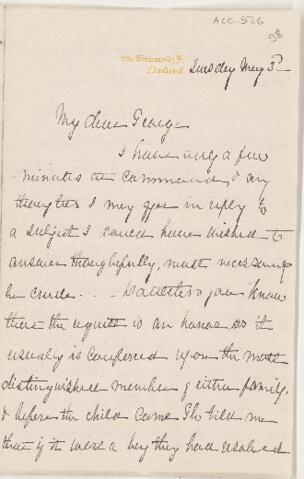 ACC-516
98
Tuesday May 3rd
My dear George
I have only a few
minutes at command, & any
thoughts I may give in reply to
a subject I could have wished to
answer thoughtfully, must necessarily
be crude. . . you know
there the is an honor as it
usually is conferred upon the most
distinguished member of either family,
& before the child came he told me
that if it were a boy they had resolved